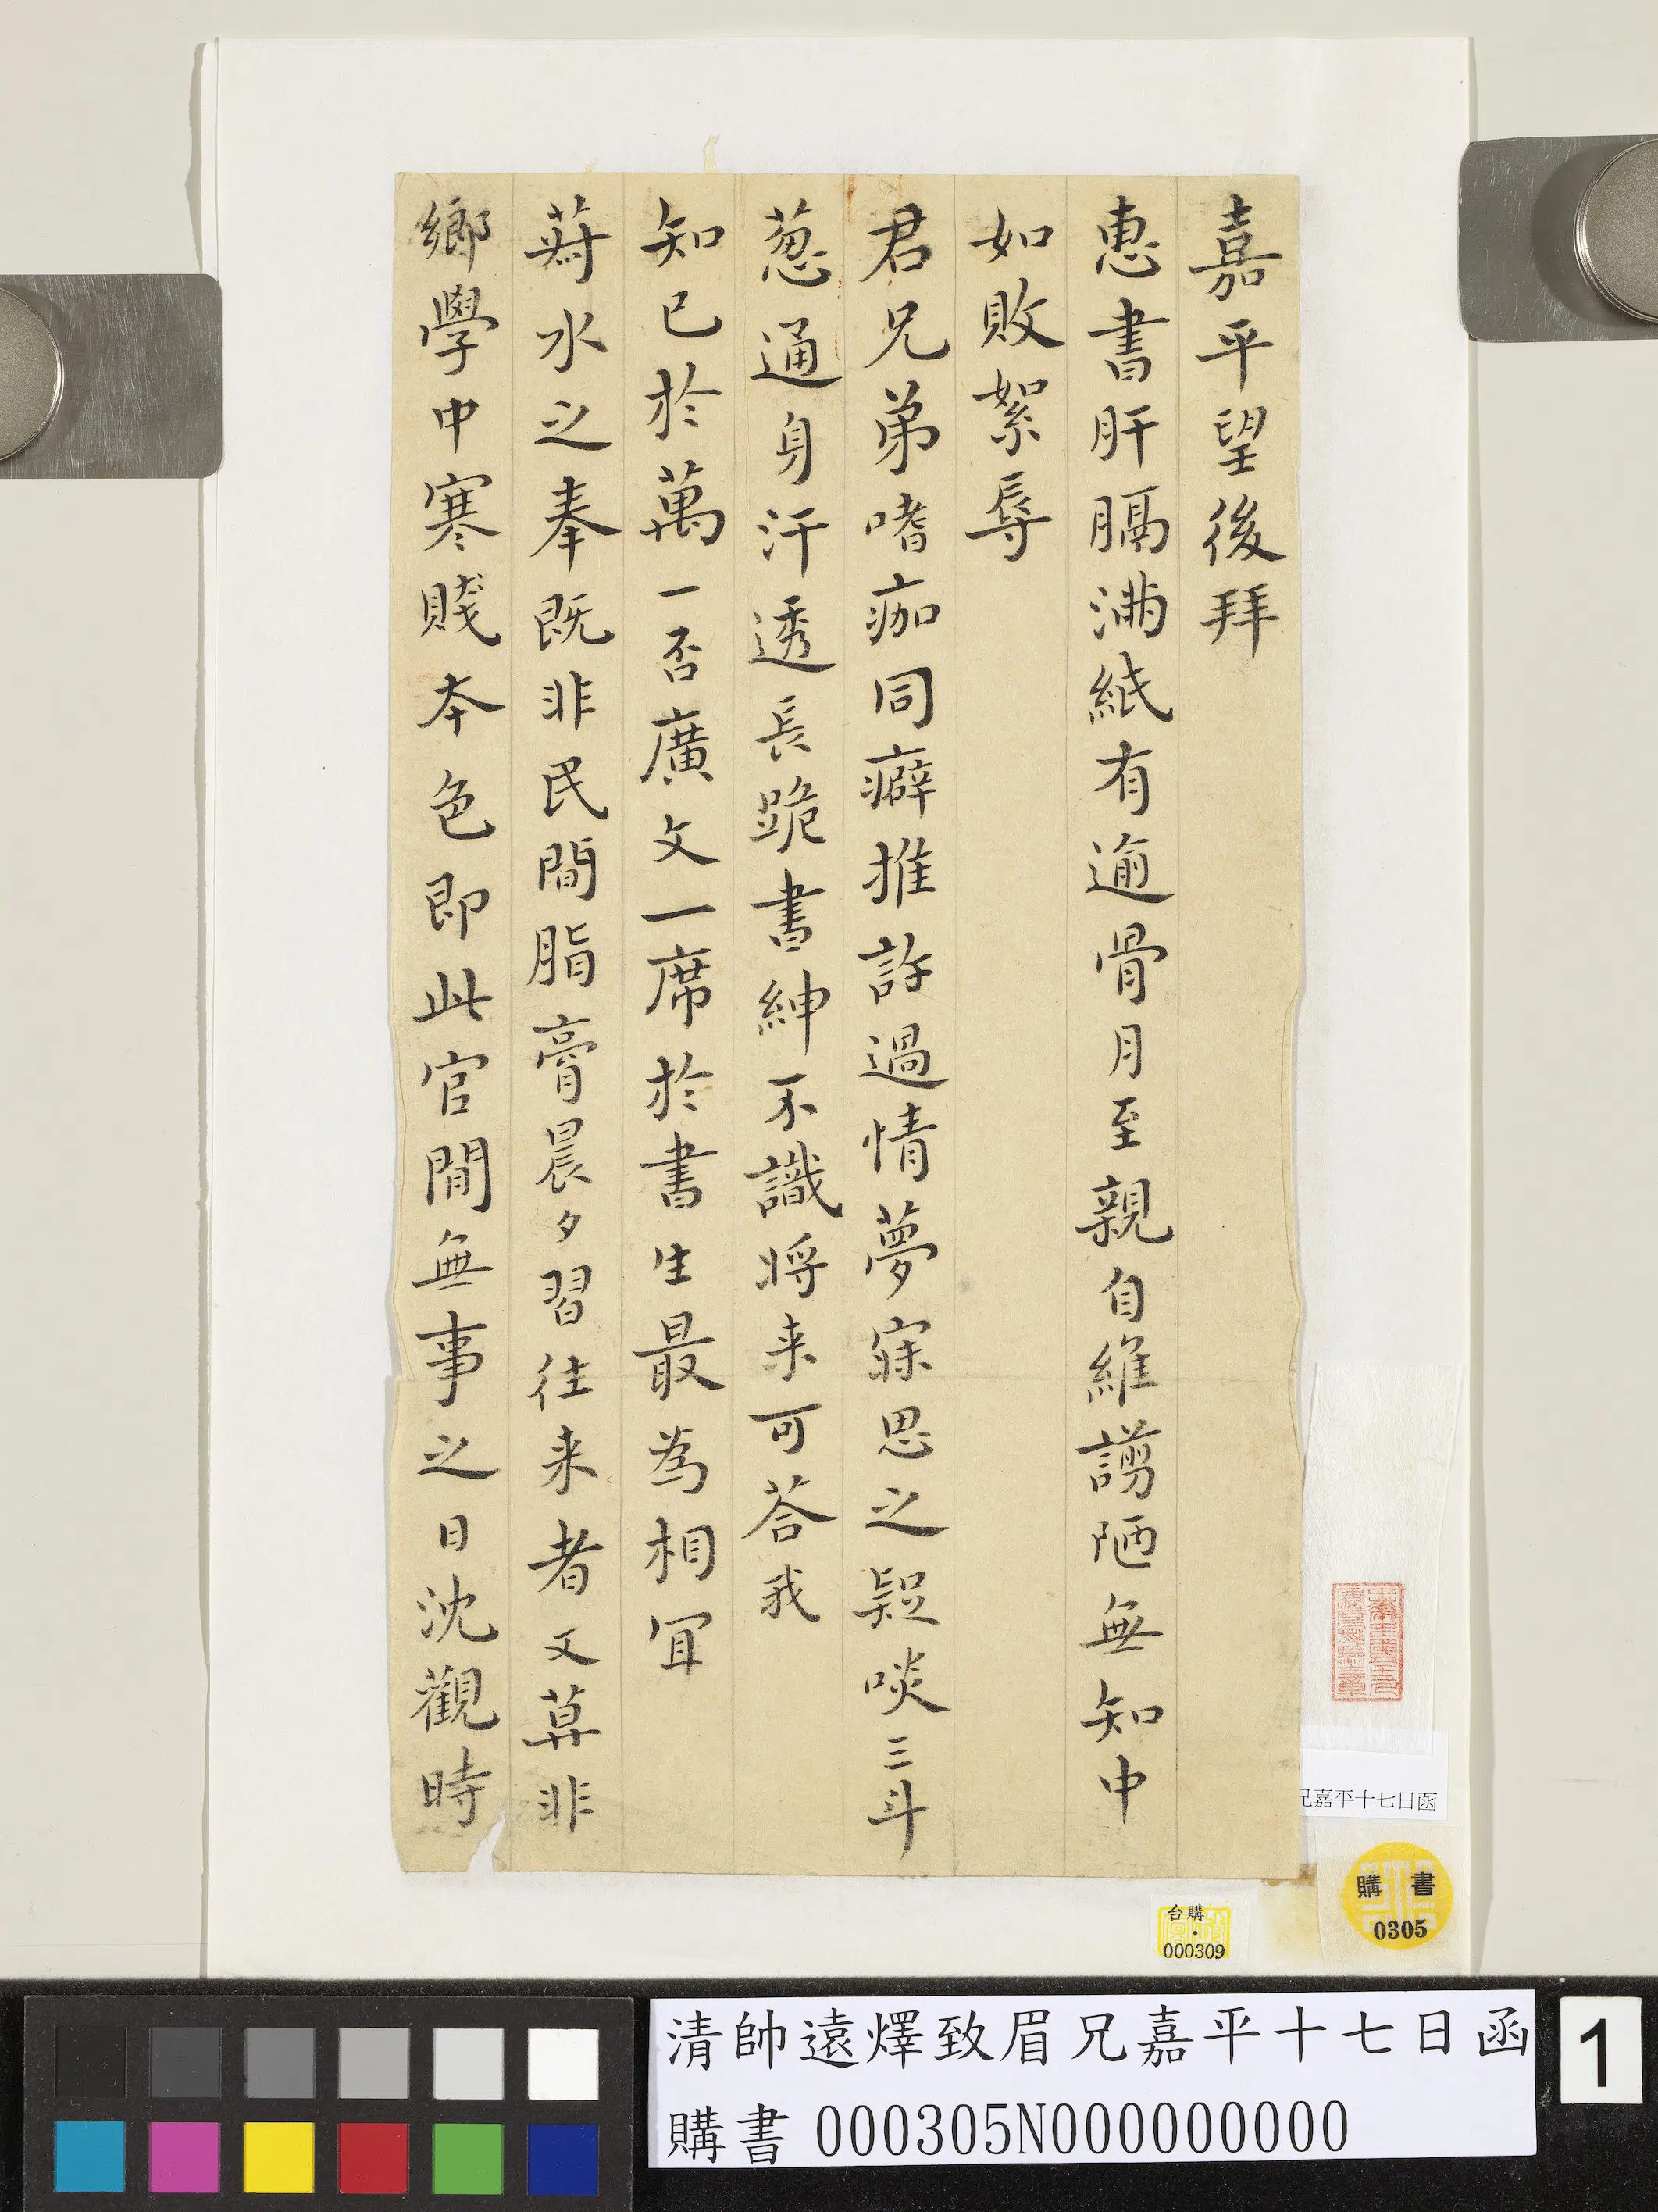 嘉平望後拜
惠書肝膈滿紙有逾骨月至親自維譾陋無知中
如敗絮辱
君兄弟嗜痂同癖推許過情夢寐思之疑啖三斗
葱通身汗透長跪書紳不識將来可荅我
知已於萬一否廣文一席於書生最為相宜
蒭水之奉既非民間脂膏晨夕習往来者又算非
鄉學中寒賤本色即此官閒無事之日沈觀時
兄嘉平十七日函
購書
0305
台購
000309
清帥遠燡致眉兄嘉平十七日函
購書 000305N000000000
1